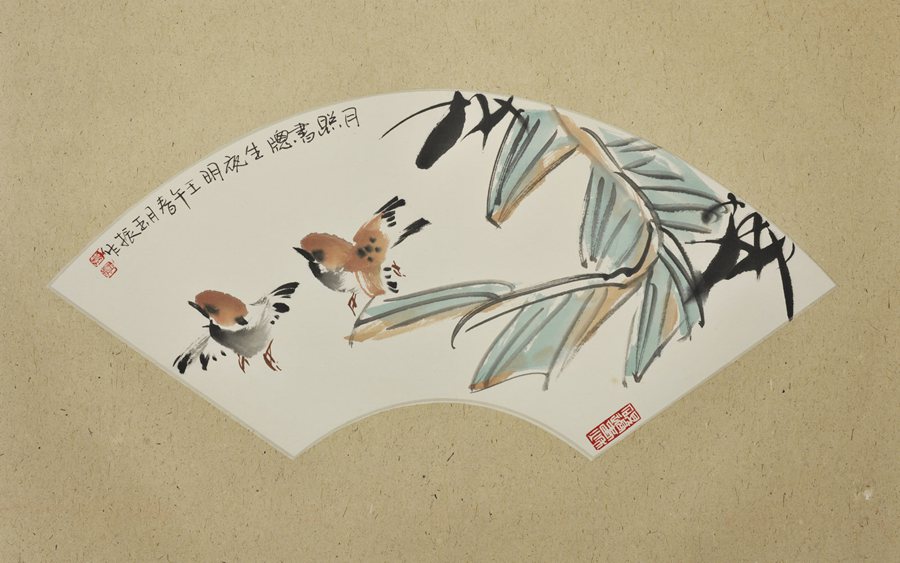 月照書牕生夜明壬午春月玉振作